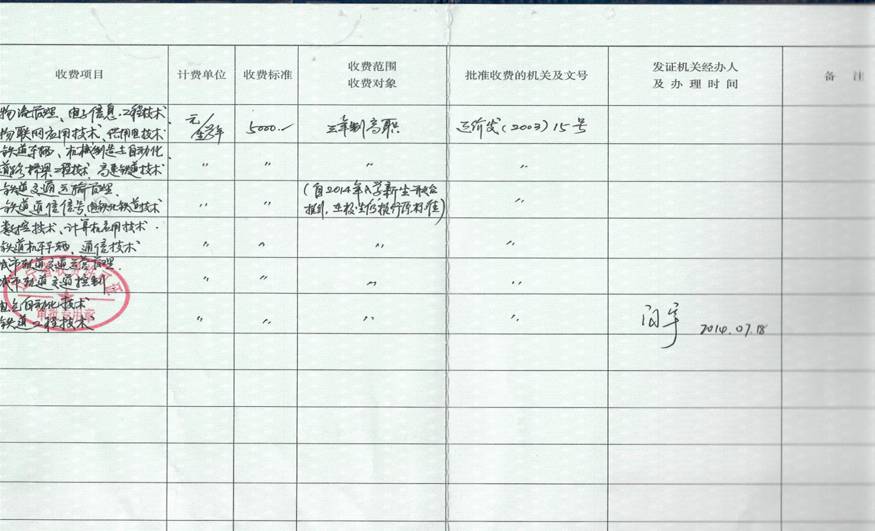 收费项目 计费单位 收费标准 收费范围 收费对象 批准收费的机关及文号 发证机关经办人 及办理时间 备 注
物流管理、电子信息工程技术、
物联网应用技术、供用电技术 元/学年 5000.- 三年制高职 辽价发(2003)15号
铁道车辆、机械制造与自动化、
道路桥梁工程技术、高速铁道技术 〃 〃 〃 〃
铁道交通运输管理、
铁道通信信号、电气化铁道技术 〃 〃 (自2014年入学新生开始
执行,在校生仍执行原标准) 〃
数控技术、计算机应用技术、
铁道机车车辆、通信技术 〃 〃 〃 〃
城市轨道交通运营管理、
城市轨道交通控制 〃 〃 〃 〃
电气自动化技术
铁道工程技术 〃 〃 〃 〃 2014.07.18